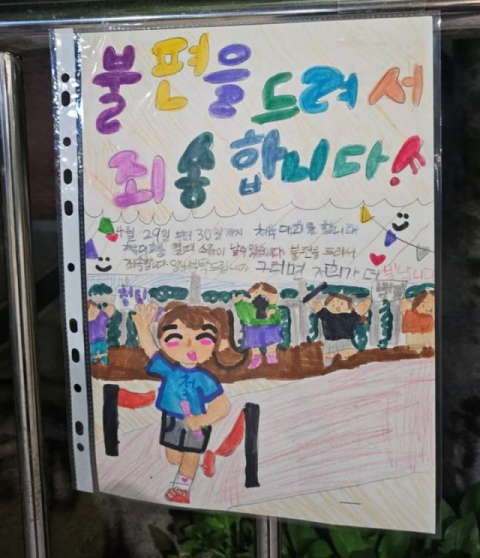 불편을드려서
죄송합니다!
4월 29일 부터 30일까지 체육대회를 합니다
체육대회를 할때 소음이 날 수 있습니다 불편을 드려서
죄송합니다 부탁드립니다 그러면 저희가 더 빛납니다
청